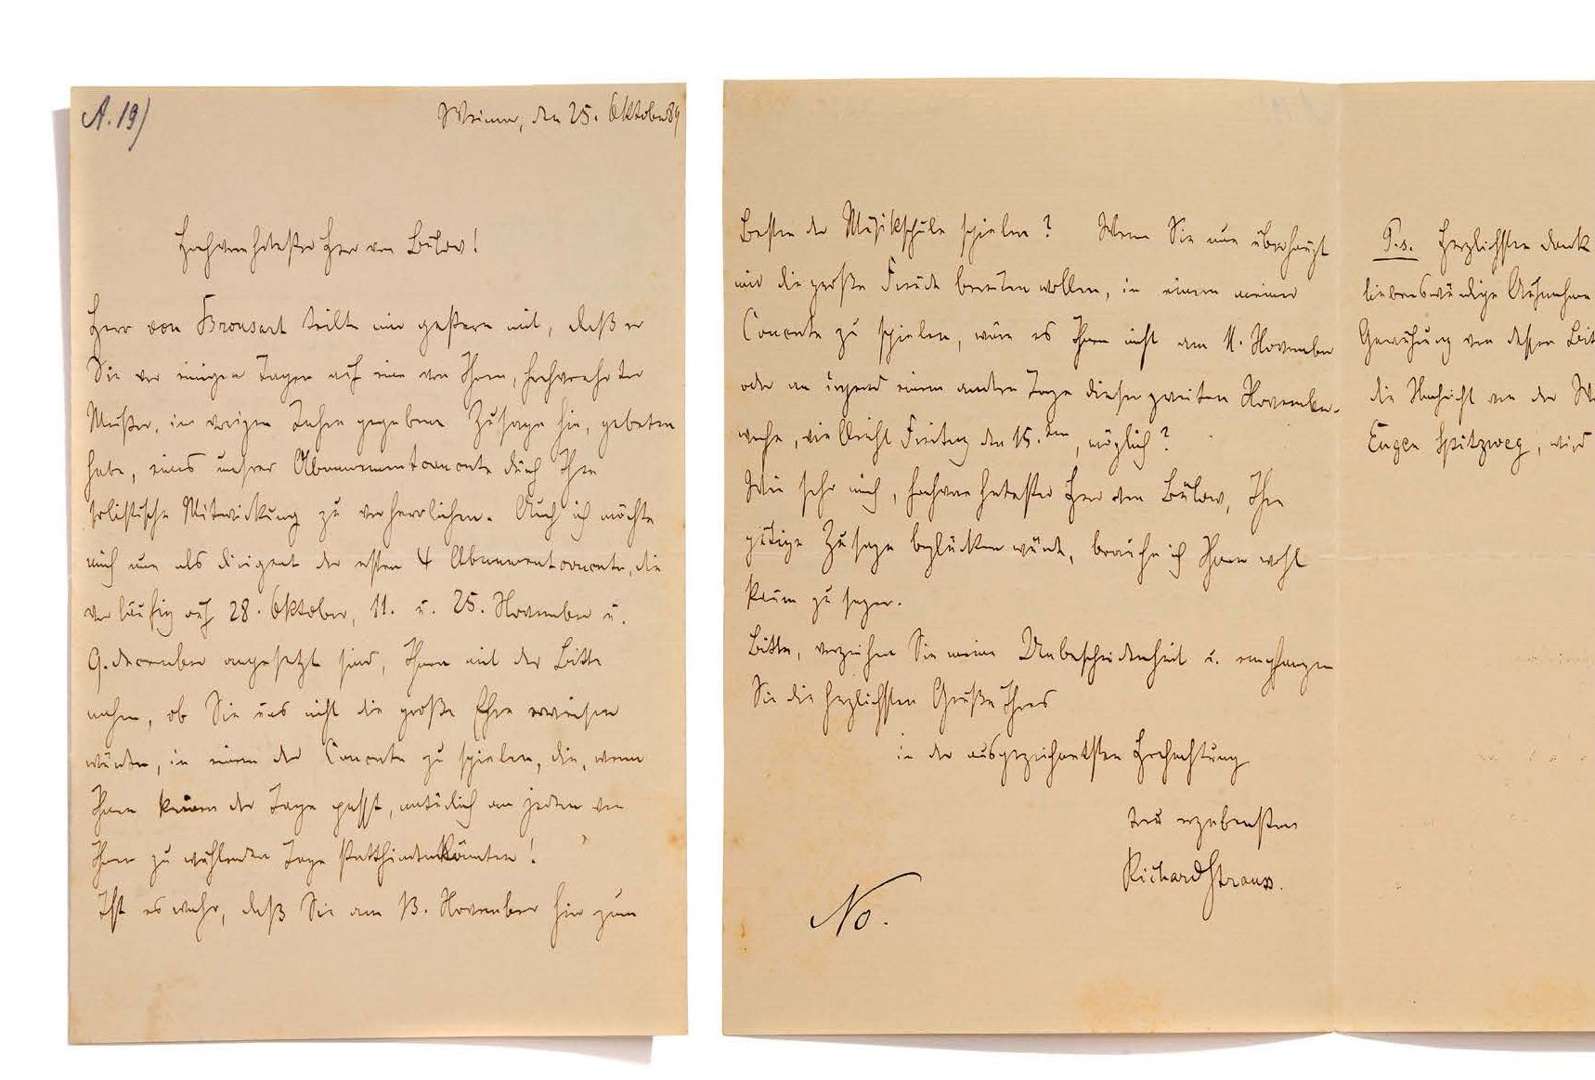 A. 19)
Weimar, den 25. Oktober 89
Hochverehrtester Herr von Bülow!
Herr von Bronsart teilte mir gestern mit, daß er
Sie vor einigen Tagen auf eine von Ihnen, hochverehrter
Meister, im vorigen Jahre gegebene Zusage hin, gebeten
habe, eines unsrer Abonnementconcerte durch Ihre
solistische Mitwirkung zu verherrlichen. Auch ich möchte
mich nun als Dirigent der ersten 4 Abonnementconcerte, die
vorläufig auf 28. Oktober, 11. u. 25. November u.
9. December angesetzt sind, Ihnen mit der Bitte
nahen, ob Sie uns nicht die große Ehre erweisen
würden, in einem der Concerte zu spielen, die, wenn
Ihnen keiner der Tage passt, natürlich an jedem von
Ihnen zu wählenden Tage stattfinden könnten!
Ist es wahr, daß Sie am 13. November hier zum
Besten der Musikschule spielen? Wenn Sie nun überhaupt
mir die große Freude bereiten wollen, in einem meiner
Concerte zu spielen, wäre es Ihnen nicht am 11. November
oder an irgend einem andern Tage dieser zweiten November-
woche, vielleicht Freitag den 15.ten, möglich?
Wie sehr mich, hochverehrtester Herr von Bülow, Ihre
gütige Zusage beglücken würde, brauche ich Ihnen wohl
kaum zu sagen.
Bitte, verzeihen Sie meine Unbescheidenheit u. empfangen
Sie die herzlichsten Grüße Ihres
in der ausgezeichnetsten Hochachtung
treu ergebensten
Richard Strauss.
No.
P.s. Herzlichsten Dank
liebenswürdige Aufnahme
von dessen
die Nachricht von der
Eugen Spitzweg, wird